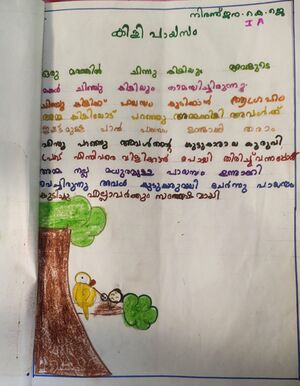 നിരഞ്ജന. കെ. ജെ
I A
കിളി പായസം
ഒരു മരത്തിൽ ചിന്നു കിളിയും അവളുടെ
മകൾ ചിഞ്ചു കിളിയും താമസിച്ചിരുന്നു.
ചിഞ്ചു കിളിക്ക് പായസം കുടിക്കാൻ ആഗ്രഹം
അമ്മ കിളിയോട് പറഞ്ഞു അമ്മക്കിളി അവൾക്ക്
പായസം ഉണ്ടാക്കി തരാം
ചിന്നു പറഞ്ഞു അവൾ തന്റെ കൂട്ടുകാരായ കുരുവി
വിളിക്കാൻ പോയി തിരിച്ച് വന്നപ്പോൾ
അമ്മ നല്ല മധുരമുള്ള പായസം ഉണ്ടാക്കി
വെച്ചിരുന്നു അവൾ കൂട്ടുകാരുമായി ചേർന്നു പായസം
കുടിച്ചു എല്ലാവർക്കും സന്തോഷമായി